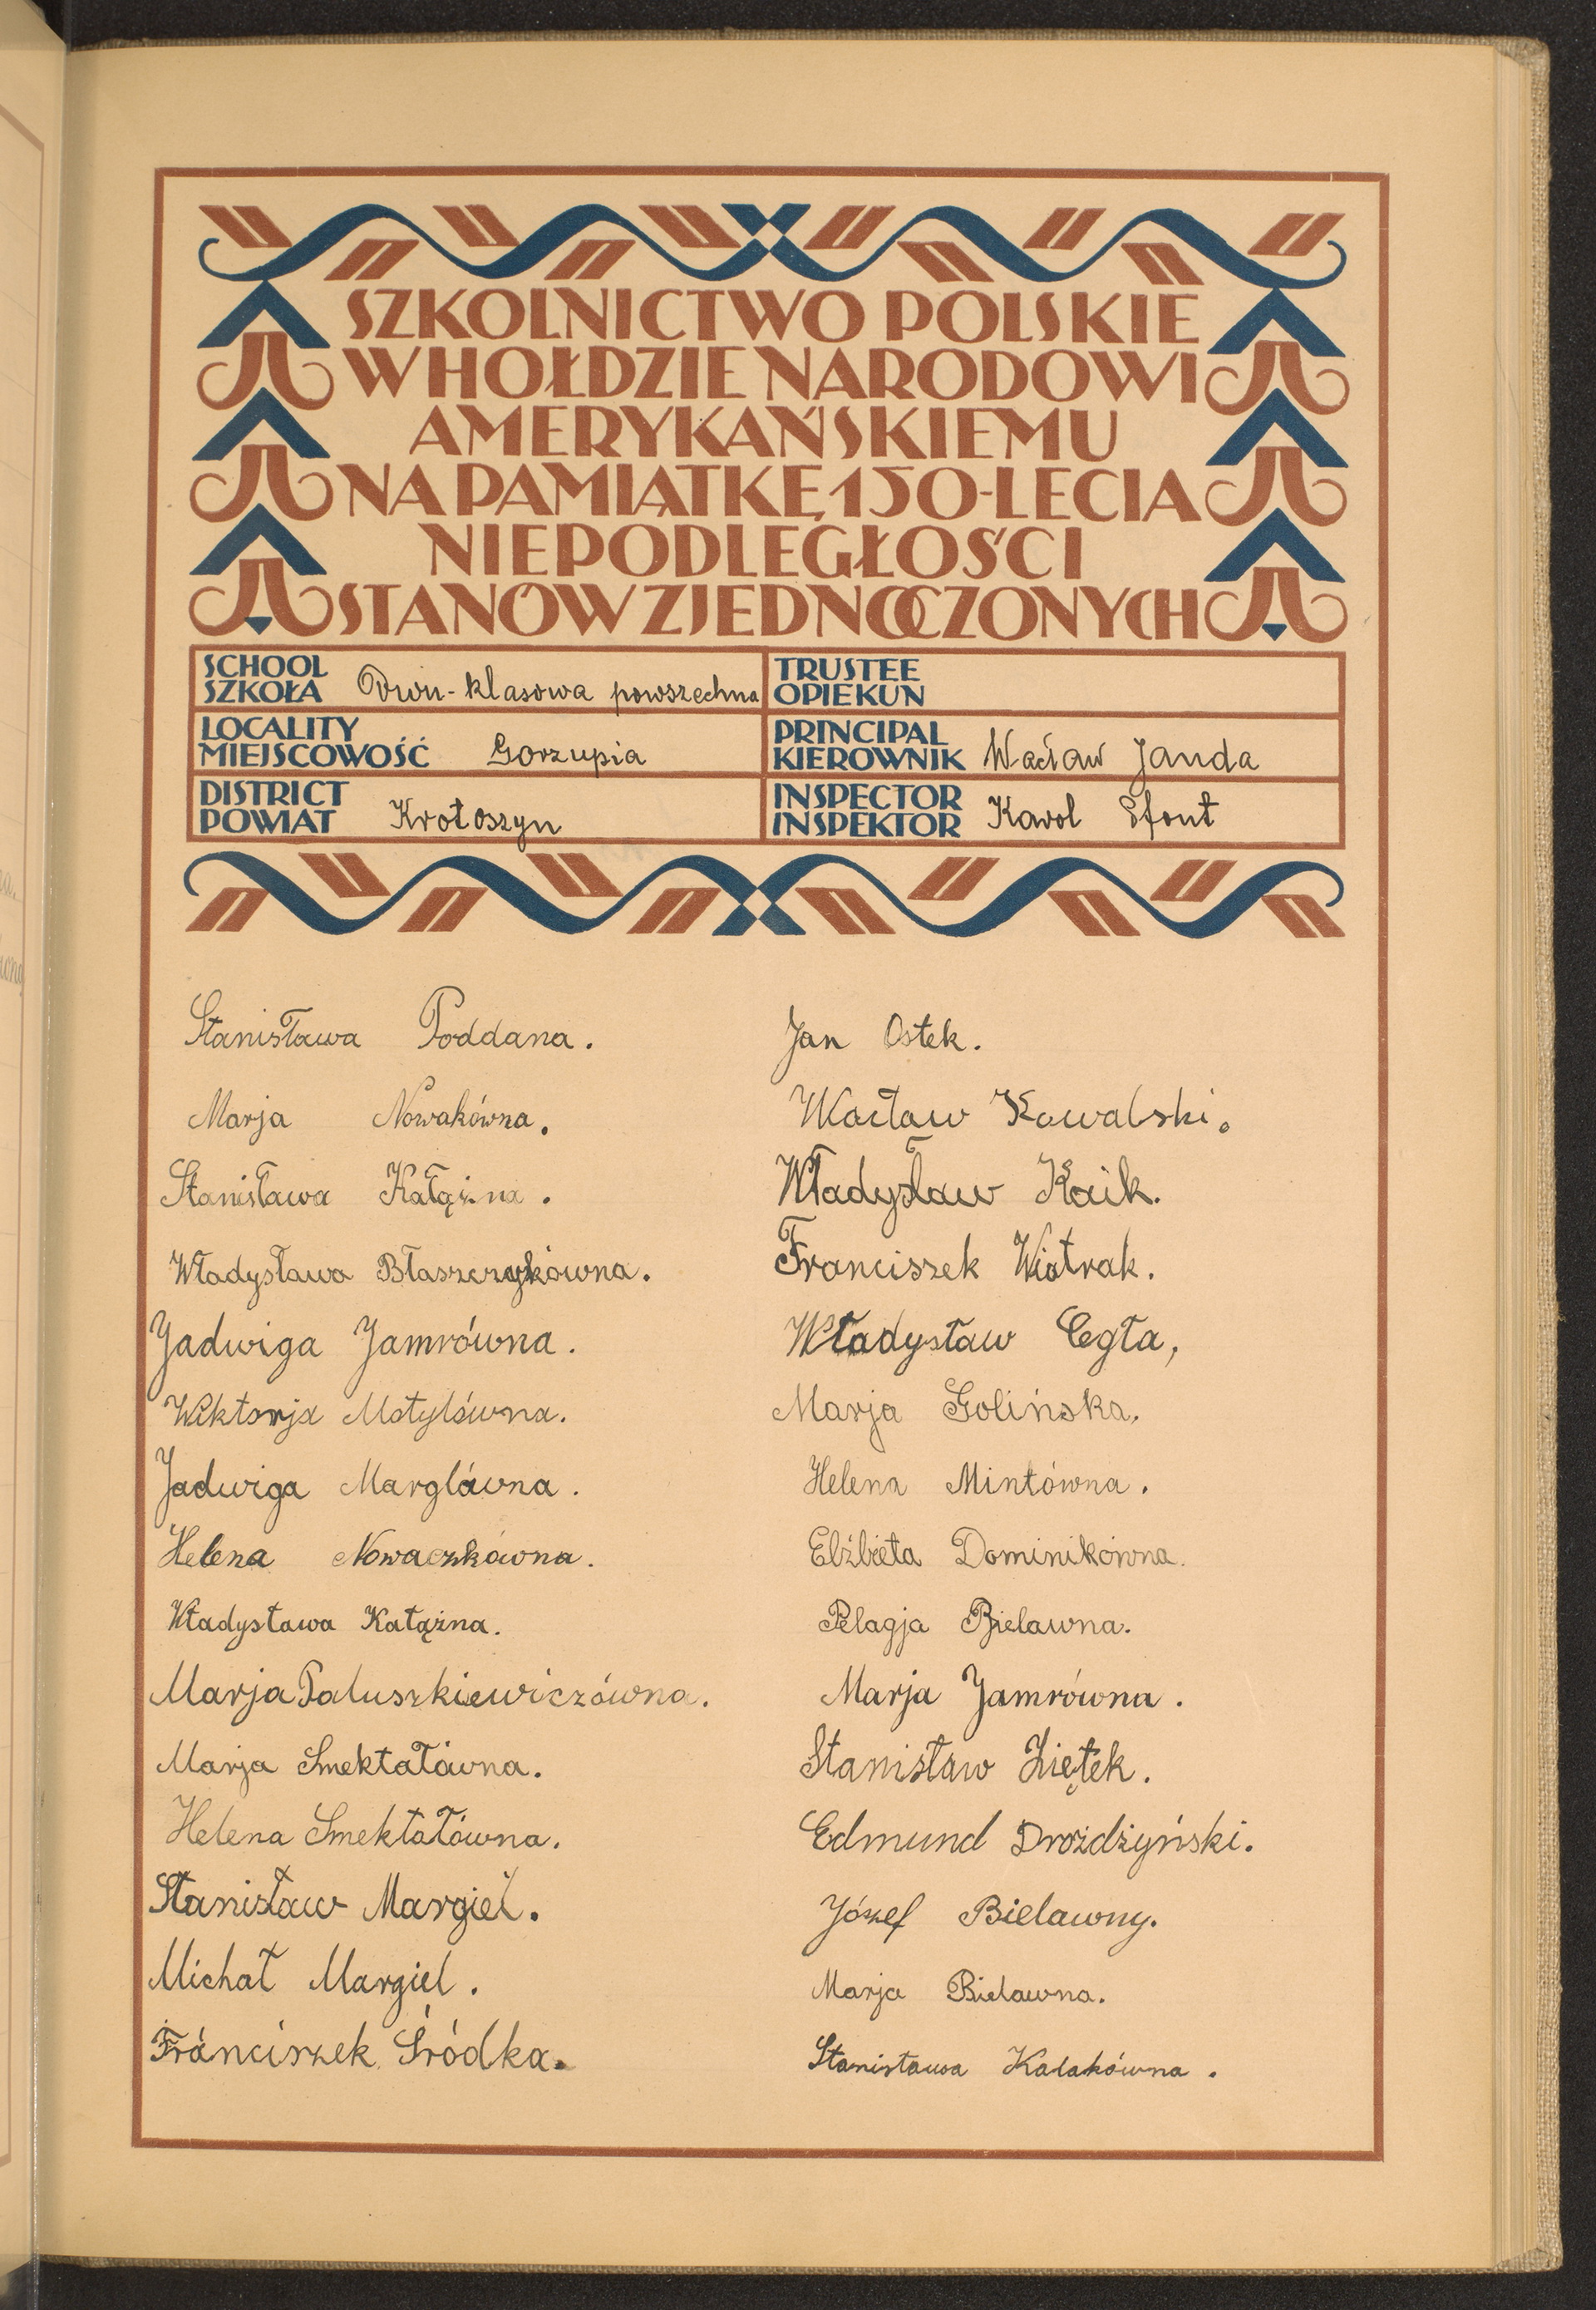 SZKOLNICTWO POLSKIE
W HOŁDZIE NARODOWI
AMERYKAŃSKIEMU
NA PAMIĄTKĘ 150-LECIA
NIEPODLEGŁOŚCI
STANÓW ZJEDNOCZONYCH
SCHOOL
SZKOŁA Dwu-klasowa powszechna
TRUSTEE
OPIEKUN
LOCALITY
MIEJSCOWOŚĆ Gorzupia
PRINCIPAL
KIEROWNIK Wacław Janda
DISTRICT
POWIAT Krotoszyn
INSPECTOR
INSPEKTOR Karol Sfont
Stanisława Poddana.
Marja Nowakówna.
Stanisława Kałążna.
Władysława Błaszczykówna.
Jadwiga Jamrówna.
Wiktorja Motylówna.
Jadwiga Marglówna.
Helena Nowaczkówna.
Władysława Kałążna.
Marja Paluszkiewiczówna.
Marja Smektałówna.
Helena Smektałówna.
Stanisław Margiel.
Michał Margiel.
Franciszek Śródka.
Jan Ostek.
Wacław Kowalski.
Władysław Kaik.
Franciszek Wiatrak.
Władysław Cegła,
Marja Golińska.
Helena Mintówna.
Elżbieta Dominikówna.
Pelagja Bielawna.
Marja Jamrówna.
Stanisław Ziętek.
Edmund Drożdżyński.
Józef Bielawny.
Marja Bielawna.
Stanisława Kalakówna.